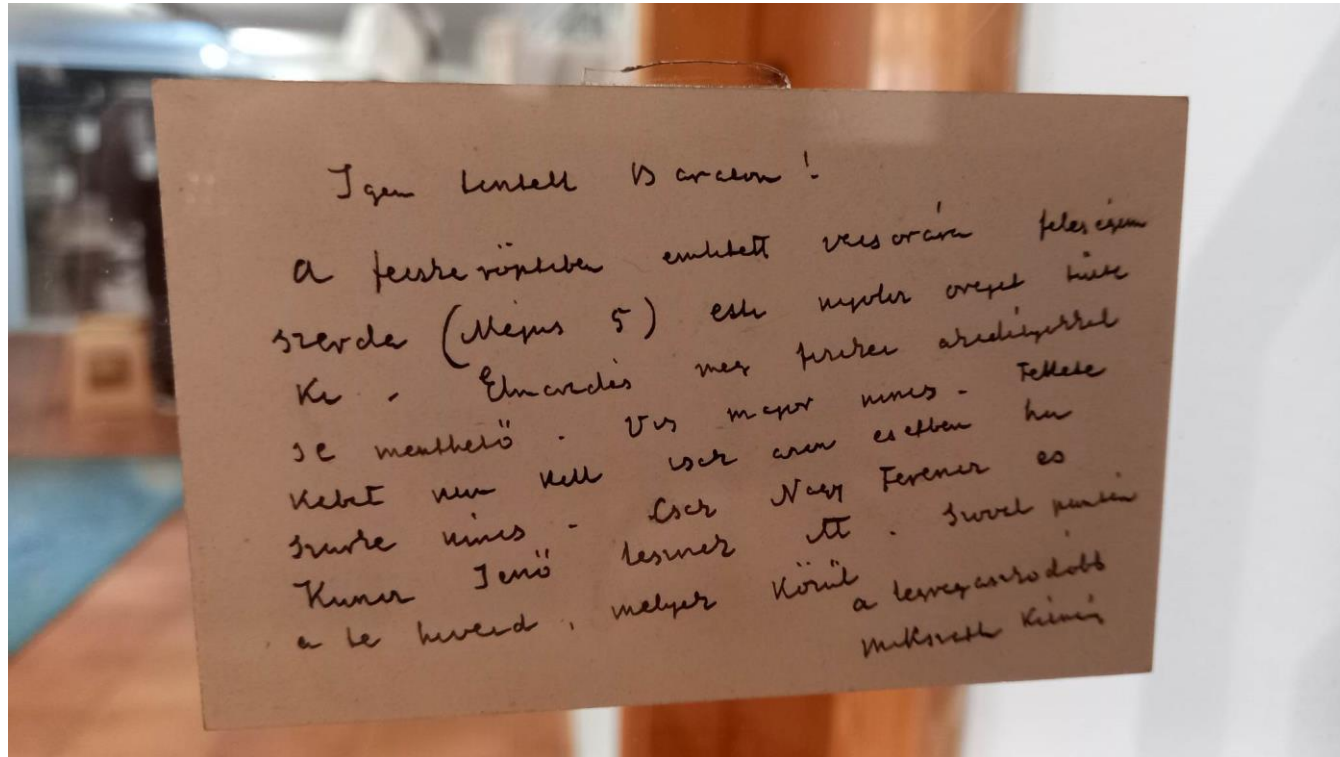 Igen tisztelt Baratom!
A fecske röptiben emlitett vacsorára feleségem
szerda (Május 5) este nyolcz oráját tüzte
Ki. Elmaradás meg fizikai akadályokkal
se menthetö. Vis major nincs. Fekete
Kabát nem kell csak azon esetben ha
szürke nincs. Csak Nagy Ferencz es
Kuncz Jenö lesznek itt. Szoval pusztán
a te hiveid, melyek Körül
a legragaszkodobb
Mikszáth Kálmán